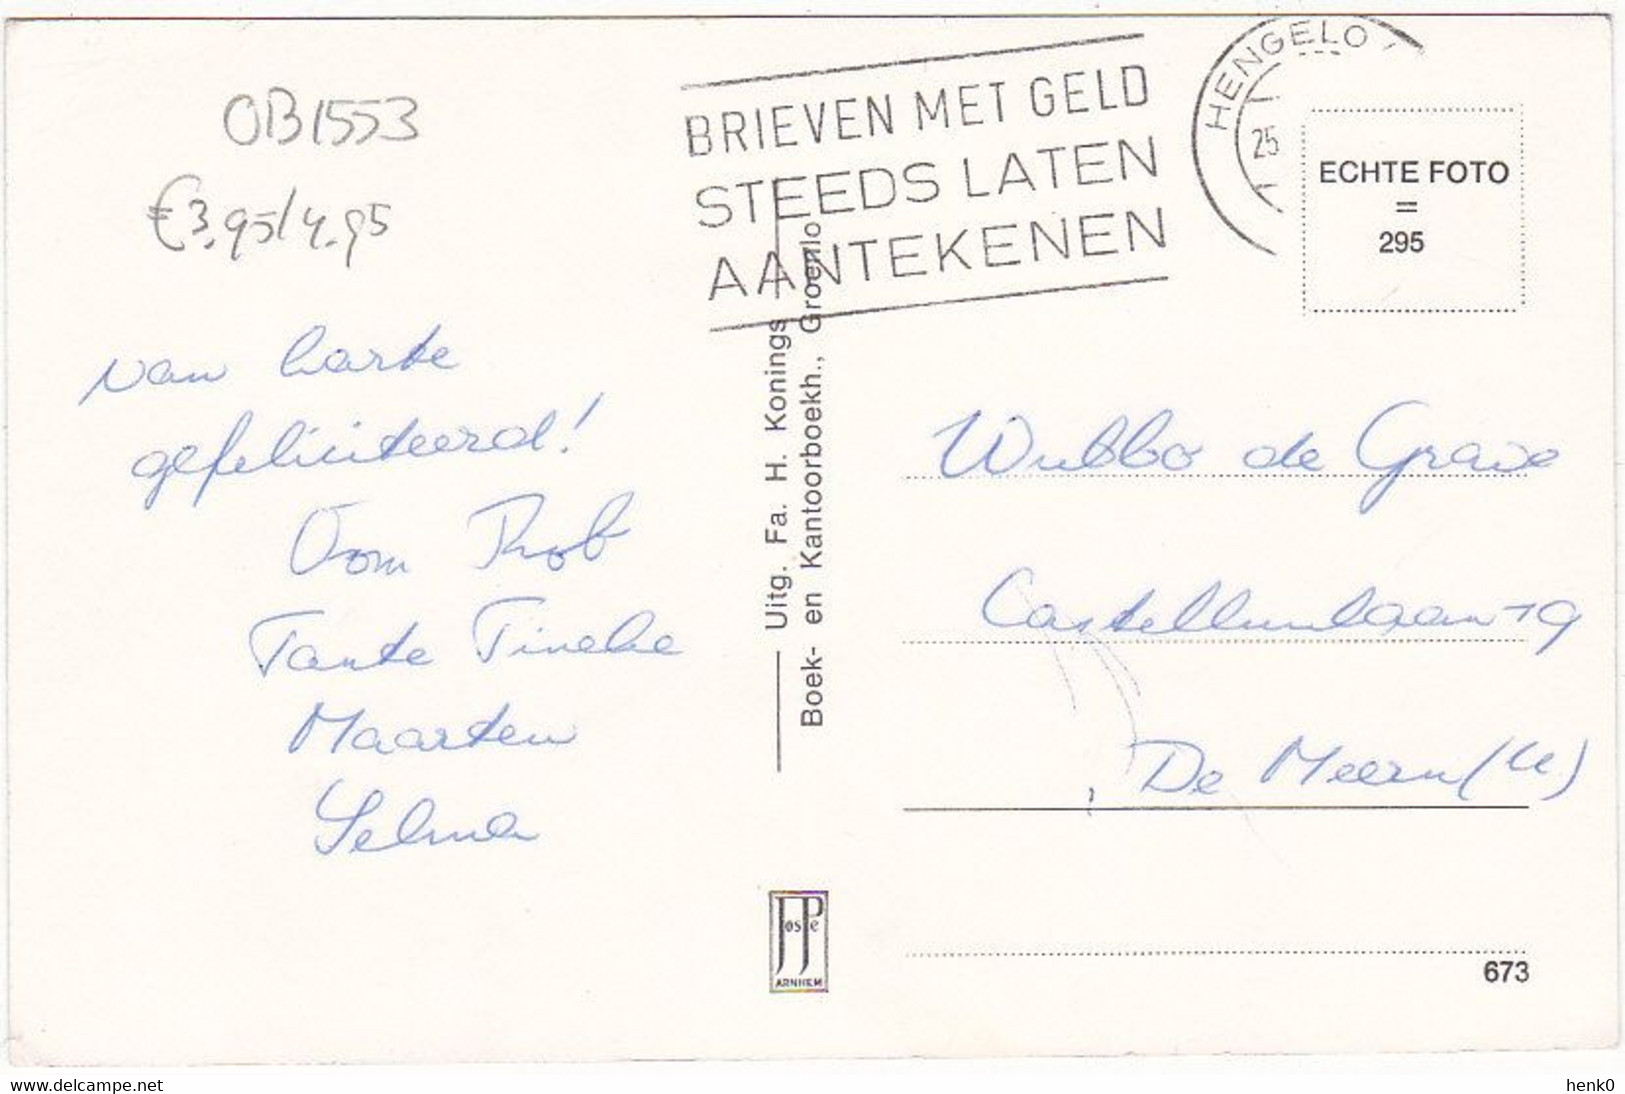 OB1553
€3,95/4.95
van harte
gefeliciteerd!
Oom Rob
Tante Tineke
Maarten
Selma
BRIEVEN MET GELD
STEEDS LATEN
AANTEKENEN
HENGELO
25
ECHTE FOTO
=
295
Uitg. Fa. H. Konings
Boek- en Kantoorboekh., Groenlo
Wubbo de Grave
Castellumlaan 19
De Meern (U)
JosPe
ARNHEM
673
www.delcampe.net
henk0